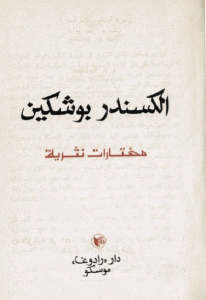 الكسندر بوشكين
مختارات نثرية
دار «رادوغا»
موسكو